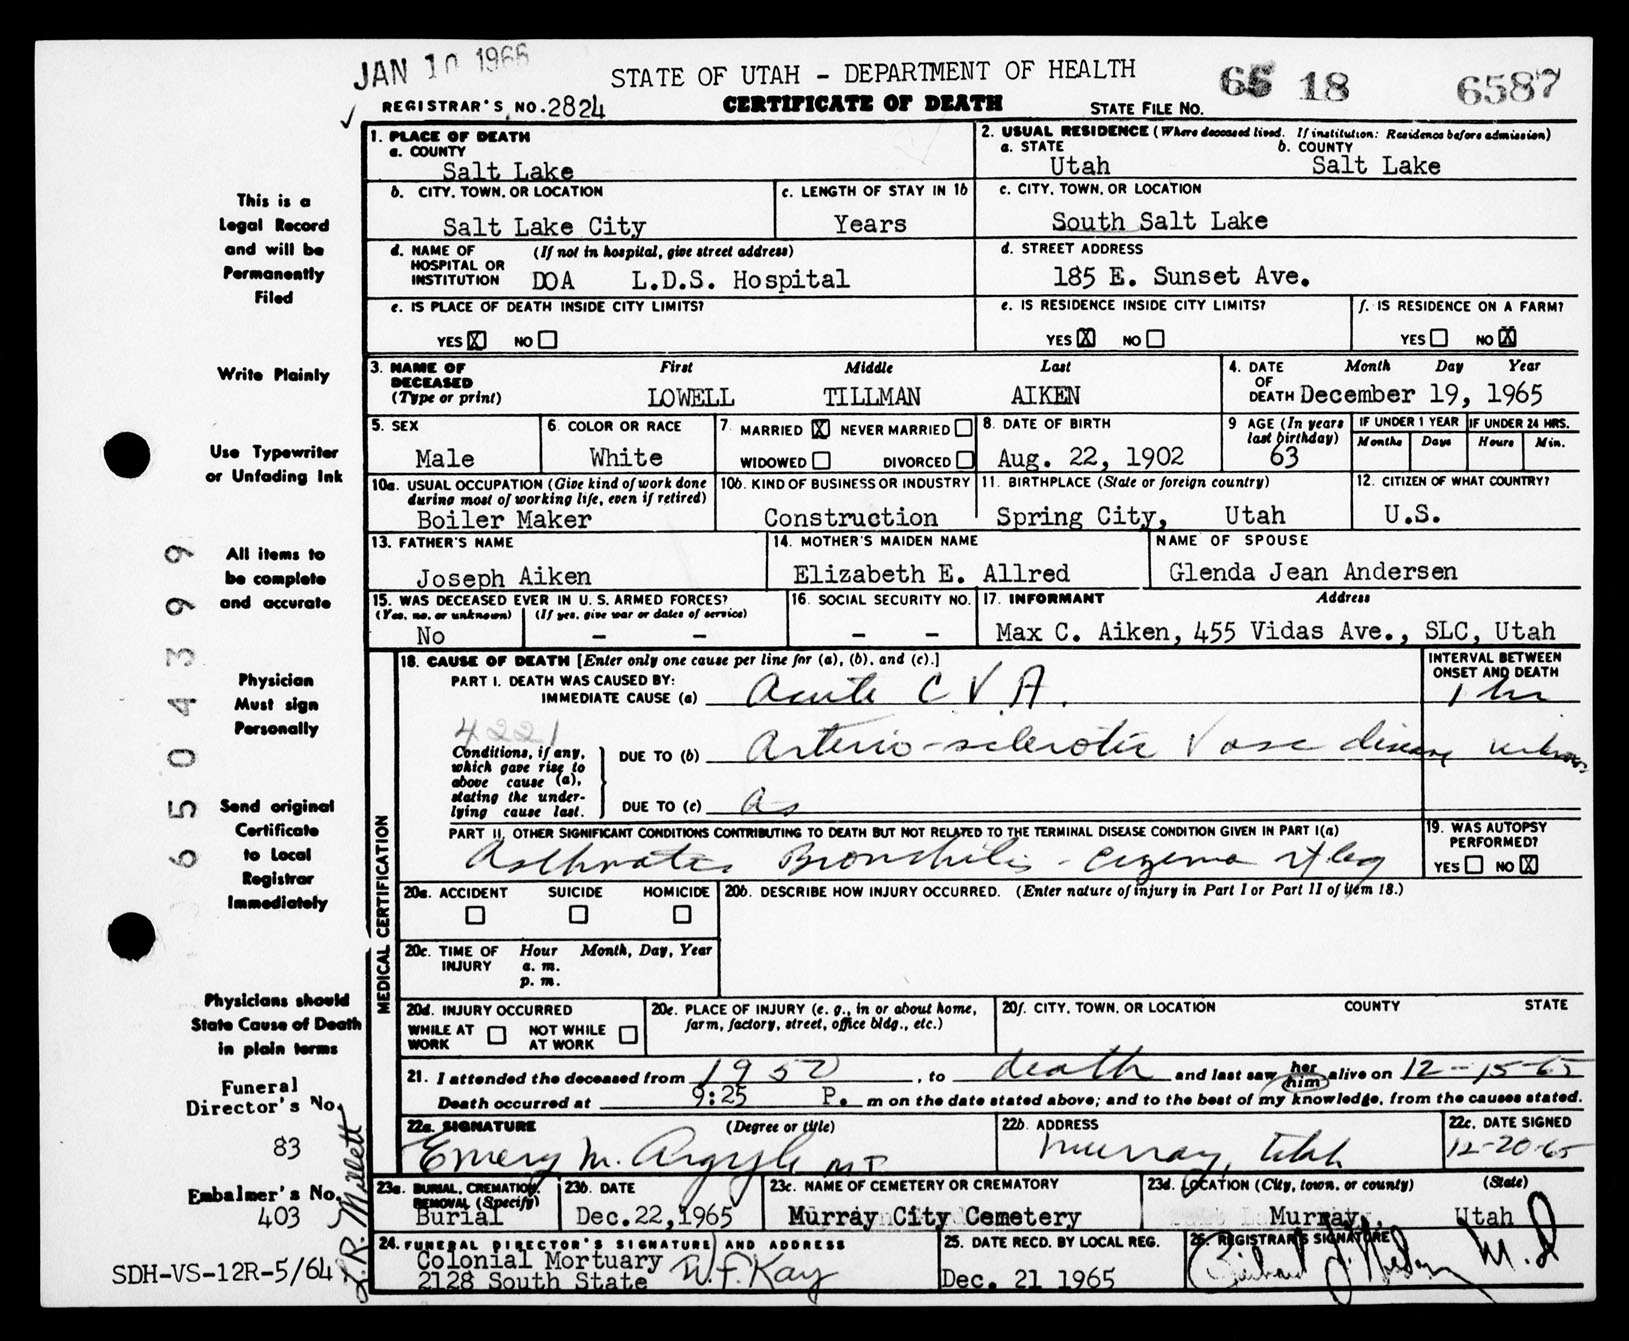 JAN 10 1966
STATE OF UTAH - DEPARTMENT OF HEALTH
65 18 6587
REGISTRAR'S NO. 2824
CERTIFICATE OF DEATH
STATE FILE NO.
1. PLACE OF DEATH
a. COUNTY
Salt Lake
2. USUAL RESIDENCE (Where deceased lived. If institution: Residence before admission)
a. STATE b. COUNTY
Utah Salt Lake
b. CITY, TOWN, OR LOCATION
Salt Lake City
c. LENGTH OF STAY IN 1b
Years
c. CITY, TOWN, OR LOCATION
South Salt Lake
d. NAME OF HOSPITAL OR INSTITUTION (If not in hospital, give street address)
DOA L.D.S. Hospital
d. STREET ADDRESS
185 E. Sunset Ave.
e. IS PLACE OF DEATH INSIDE CITY LIMITS?
YES X NO
e. IS RESIDENCE INSIDE CITY LIMITS?
YES X NO
f. IS RESIDENCE ON A FARM?
YES NO X
3. NAME OF DECEASED (Type or print)
First Middle Last
LOWELL TILLMAN AIKEN
4. DATE OF DEATH Month Day Year
December 19, 1965
5. SEX
Male
6. COLOR OR RACE
White
7. MARRIED X NEVER MARRIED
WIDOWED DIVORCED
8. DATE OF BIRTH
Aug. 22, 1902
9 AGE (In years last birthday)
63
IF UNDER 1 YEAR
Months Days
IF UNDER 24 HRS.
Hours Min.
10a. USUAL OCCUPATION (Give kind of work done during most of working life, even if retired)
Boiler Maker
10b. KIND OF BUSINESS OR INDUSTRY
Construction
11. BIRTHPLACE (State or foreign country)
Spring City, Utah
12. CITIZEN OF WHAT COUNTRY?
U.S.
13. FATHER'S NAME
Joseph Aiken
14. MOTHER'S MAIDEN NAME
Elizabeth E. Allred
NAME OF SPOUSE
Glenda Jean Andersen
15. WAS DECEASED EVER IN U.S. ARMED FORCES?
(Yes, no, or unknown) (If yes, give war or dates of service)
No - -
16. SOCIAL SECURITY NO.
- -
17. INFORMANT Address
Max C. Aiken, 455 Vidas Ave., SLC, Utah
MEDICAL CERTIFICATION
18. CAUSE OF DEATH [Enter only one cause per line for (a), (b), and (c).]
PART I. DEATH WAS CAUSED BY:
IMMEDIATE CAUSE (a) Acute C.V.A.
INTERVAL BETWEEN ONSET AND DEATH
1 hr
4221
Conditions, if any, which gave rise to above cause (a), stating the underlying cause last.
DUE TO (b) Arterio-sclerotic Vasc disease unknown
DUE TO (c) as
PART II. OTHER SIGNIFICANT CONDITIONS CONTRIBUTING TO DEATH BUT NOT RELATED TO THE TERMINAL DISEASE CONDITION GIVEN IN PART I(a)
Asthmatic Bronchitis - Eczema rt leg
19. WAS AUTOPSY PERFORMED?
YES NO X
20a. ACCIDENT SUICIDE HOMICIDE
20b. DESCRIBE HOW INJURY OCCURRED. (Enter nature of injury in Part I or Part II of item 18.)
20c. TIME OF INJURY Hour Month, Day, Year
a. m.
p. m.
20d. INJURY OCCURRED
WHILE AT WORK NOT WHILE AT WORK
20e. PLACE OF INJURY (e. g., in or about home, farm, factory, street, office bldg., etc.)
20f. CITY, TOWN, OR LOCATION COUNTY STATE
21. I attended the deceased from 1950, to death and last saw her him alive on 12-15-65
Death occurred at 9:25 P. m on the date stated above; and to the best of my knowledge, from the causes stated.
22a. SIGNATURE (Degree or title)
Emery M. Argyle MD
22b. ADDRESS
Murray, Utah
22c. DATE SIGNED
12-20-65
23a. BURIAL, CREMATION, REMOVAL (Specify)
Burial
23b. DATE
Dec. 22, 1965
23c. NAME OF CEMETERY OR CREMATORY
Murray City Cemetery
23d. LOCATION (City, town, or county) (State)
Murray, Utah
24. FUNERAL DIRECTOR'S SIGNATURE AND ADDRESS
Colonial Mortuary W.F. Kay
2128 South State
25. DATE RECD. BY LOCAL REG.
Dec. 21 1965
26. REGISTRAR'S SIGNATURE
M.D
This is a
Legal Record
and will be
Permanently
Filed
Write Plainly
Use Typewriter
or Unfading Ink
All items to
be complete
and accurate
Physician
Must sign
Personally
Send original
Certificate
to Local
Registrar
Immediately
Physicians should
State Cause of Death
in plain terms
Funeral
Director's No.
83
Embalmer's No.
403
SDH-VS-12R-5/64
6504399